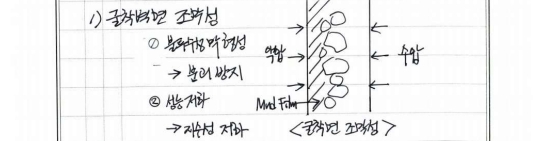 1) 굴착벽면 조막성
① 불투수성 막 형성
→ 붕괴 방지
② 성능 저하
→ 지수성 저하
액압 →
← 수압
Mud Film
<굴착면 조막성>